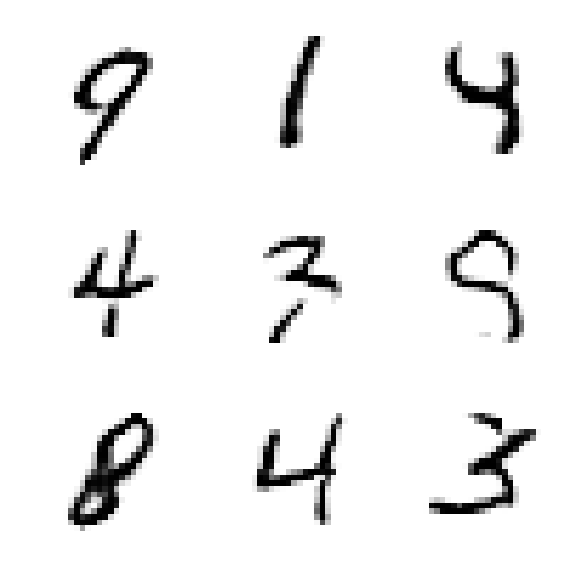 9 1 4
4 3 9
8 4 3